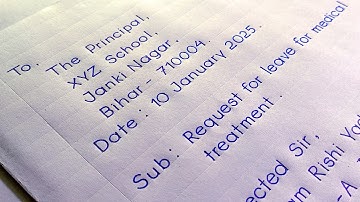 To,
The Principal,
XYZ School,
Janki Nagar,
Bihar - 710004.
Date : 10 January 2025.
Sub : Request for leave for medical
treatment .
Sir,
Rishi